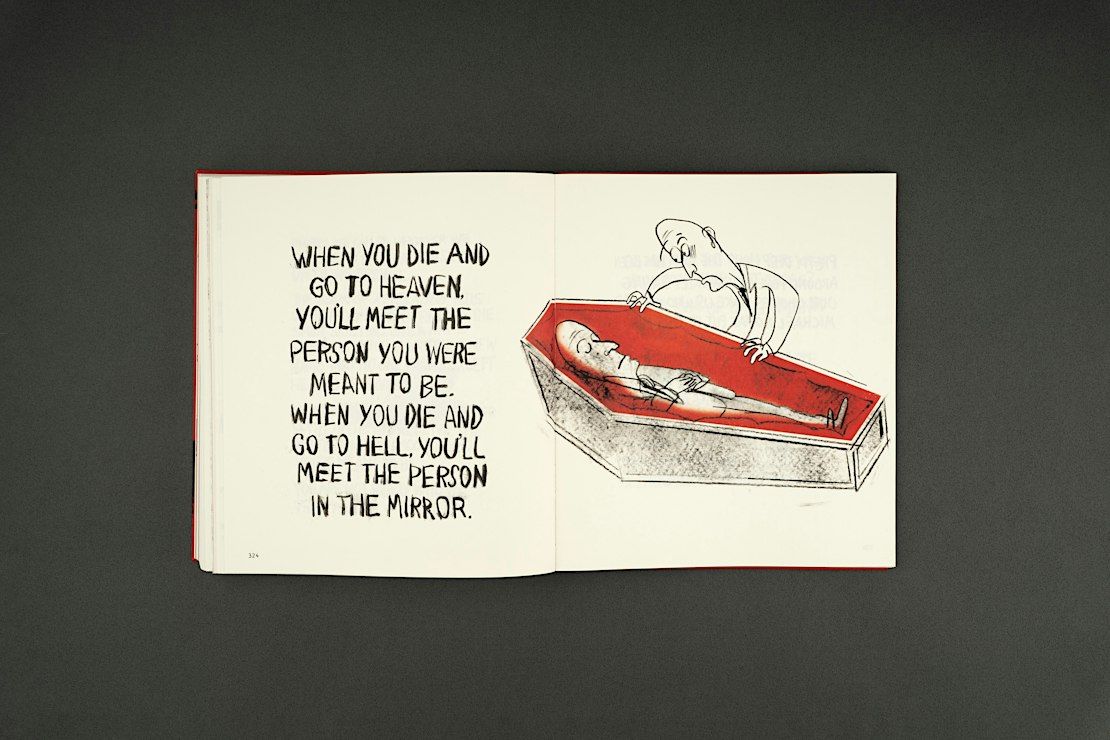 WHEN YOU DIE AND
GO TO HEAVEN,
YOU'LL MEET THE
PERSON YOU WERE
MEANT TO BE.
WHEN YOU DIE AND
GO TO HELL, YOU'LL
MEET THE PERSON
IN THE MIRROR.
324